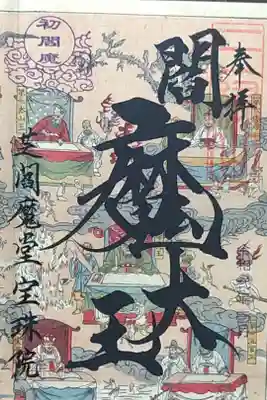 奉拝
初閻魔
閻魔大王
芝閻魔堂宝珠院